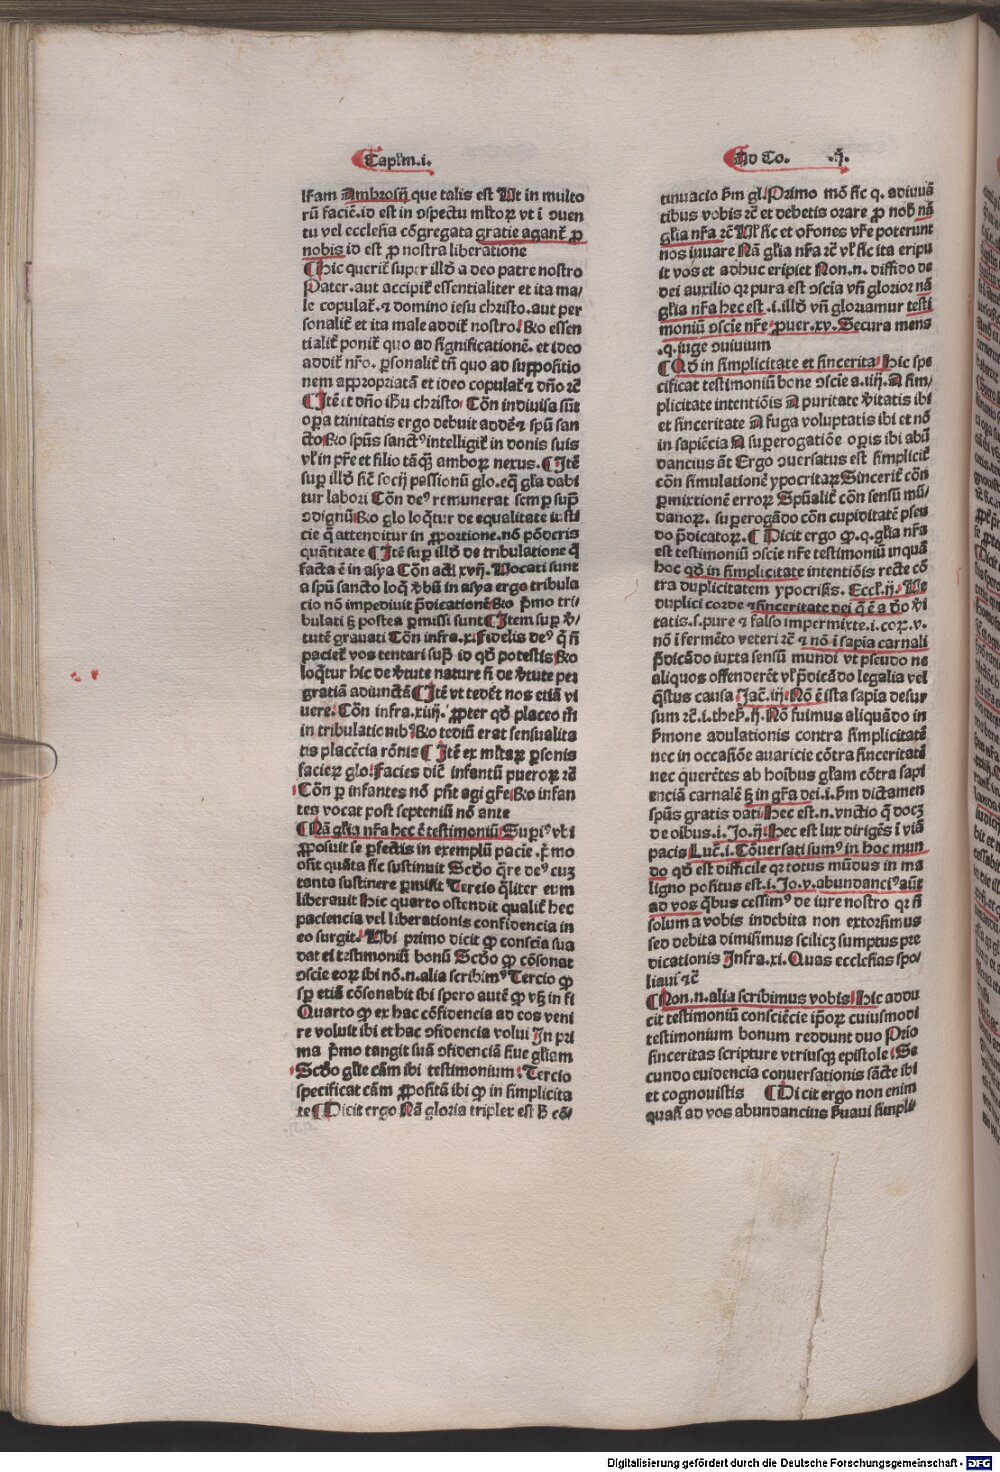 Capl'm .i.
lr̄am Ambrosij que talis est Ut in multo
rū facie. id est in ꝯspectu ml'toꝝ vt ī ꝯuen
tu vel ecclesia cōgregata gratie agant᷑ ꝓ
nobis id est ꝓ nostra liberatione
¶ Hic querit᷑ super illd̄ a deo patre nostro
Pater. aut accipit᷑ essentialiter et ita ma⸗
le copulat᷑. ⁊ domino iesu christo. aut per
sonalit᷑ et ita male addit᷑ nostro. Rō essen
tialit᷑ ponit᷑ quo ad significationē. et ideo
addit᷑ nr̄o. ꝑsonalit᷑ tn̄ quo ad suppositio
nem appropriatā et ideo copulat᷑ ⁊ dn̄o rc̄
¶ Itē et dn̄o ihū christo. Cōn indiuisa sūt
opera trinitatis ergo debuit adde ⁊ spū san
cto Rō spūs sanctꝰ intelligit᷑ in donis suis
vl' in pr̄e et filio tāꝙ̄ amboꝝ nexus. ¶ Itē
super illd̄ sic̄ socij passionū glo. eq̄ gl'a dabi
tur labori Cōn deꝰ remunerat semper supᷓ
ꝯdignū Rō glo loq̄tur de equalitate iusti
cie q̄ attenditur in ꝓportione. nō pōderis
quātitate ¶ Itē super illd̄ de tribulatione q̄
facta ē in asya Cōn act. xvij. Uocati sunt
a spū sancto loq̄ v̄bū in asya ergo tribula
cio nō impediuit p̄dicationē Rō pͥmo tri⸗
bulati ß postea ꝑmissi sunt ¶ Item super v̄⸗
tutē grauati Cōn infra. x. Fidelis deꝰ q̄ n̄
paciet᷑ vos tentari supᷓ id qd̄ potestis Rō
loq̄tur hic de v̄tute nature n̄ de v̄tute per
gratiā adiunctā ¶ Itē vt tedet᷑ nos etiā vi
uere. Cōn infra. xiiij. ꝓpter qd̄ placeo m̄
in tribulationibꝰ Rō tediū erat sensualita
tis placēcia rōnis ¶ Itē ex ml'taꝝ ꝑsonis
facieꝝ glo. Facies dic̄ infantū pueroꝝ rc̄
Cōn ꝑ infantes nō pn̄t agi gr̄e Rō infan
tes vocat post septeniū nō ante
¶ Nā gl'ia nr̄a hec ē testimoniū Supiꝰ vbi
ꝓposuit se ꝑfectis in exemplū pacie. pͥmo
on̄t quāta sic̄ sustinuit Scd̄o q̄re deꝰ eūꝫ
tanta sustinere ꝑmisit Tercio q̄liter eum
liberauit Hic quarto ostendit qualit᷑ hec
paciencia vel liberationis confidencia in
eo surgit. Ubi primo dicit ꝙ conscīa sua
dat ei testimoniū bonū Scd̄o ꝙ cōsonat
ꝯscie eoꝝ ibi nō. n. alia scribimꝰ Tercio ꝙ
sp etiā cōsonabit ibi spero autē ꝙ vßꝫ in fi
Quarto ꝙ ex hac cōfidencia ad eos veni
re voluit ibi et hac ꝯfidencia volui In pri
ma pͥmo tangit suā ꝯfidenciā siue gl'iam
Scd̄o gl'ie cām ibi testimonium. Tercio
specificat cām ꝓposita ibi ꝙ in simplicita
te ¶ Dicit ergo Nā gloria triplex est ß cō⸗
Ad Co. .ij.
tinuacio ẜm gl. Primo mō sic q. adiuuā
tibus vobis rc̄ et debetis orare ꝓ nob̄ nā
gl'ia nr̄a rc̄ Ul' sic et or̄ones vr̄e poterunt
nos iuuare Nā gl'ia nr̄a rc̄ vl' sic ita eripu
it vos et adhuc eripiet Non. n. diffido de
dei auxilio qr pura est ꝯscia vn̄ glorior nā
gl'ia nr̄a hec est. i. illd̄ vn̄ gloriamur testi
moniū ꝯscie nr̄e. ꝓuer. xv. Secura mens
.q. iuge ꝯuiuium
¶ Qd̄ in simplicitate et sincerita. Hic spe
cificat testimoniū bone ꝯscie a. iiij. A sim⸗
plicitate intentiōis A puritate v̄itatis ibi
et sinceritate A fuga voluptatis ibi et nō
in sapiēcia A superogatiōe oꝑis ibi abū
dancius āt Ergo ꝯuersatus est simplicit᷑
cōn simulationē ypocritaꝝ Sincerit᷑ cōn
ꝑmixtionē erroꝝ Spūalit᷑ cōn sensū mū⸗
danoꝝ. superogādo cōn cupiditatē pseu
do p̄dicatoꝝ. ¶ Dicit ergo ꝙ. q. gl'ia nr̄a
est testimoniū ꝯscie nr̄e testimoniū inquā
hoc qd̄ in simplicitate intentiōis recte cō
tra duplicitatem ypocrisis. Eccl'. ij. Ue
duplici corde ⁊ sinceritate dei q̄ ē a do v̄i
tatis. s. pure ⁊ falso impermixte. i. coꝝ. v.
nō ī fermēto veteri rc̄ ⁊ nō ī sapia carnali
p̄dicādo iuxta sensū mundi vt pseudo ne
aliquos offenderēt vl' p̄dicādo legalia vel
q̄stus causa. Jac̄. iij. Nō ē ista sapīa desur
sum rc̄. i. thes̄. ij. Nō fuimus aliquādo in
ẜmone adulationis contra simplicitatē
nec in occasiōe auaricie cōtra sinceritatē
nec querētes ab hoībus gl'am cōtra sapi
enciā carnalē ß in gr̄a dei. i. ẜm dictamen
spūs gratis dati. Hec est. n. vnctio q̄ docꝫ
de oībus. i. Jo. ij. Hec est lux dirigēs ī viā
pacis Luc̄. i. Cōuersati sumꝰ in hoc mun
do qd̄ est difficile qr totus mūdus in ma
ligno positus est. i. Jo. v. abundanciꝰ aūt
ad vos q̄bus cessimꝰ de iure nostro qr n̄
solum a vobis indebita non extorsimus
sed debita dimisimus scilicꝫ sumptus pre
dicationis Infra. xi. Quas ecclesias spo⸗
liaui rc̄
¶ Non. n. alia scribimus vobis. Hic addu
cit testimoniū consciēcie ip̄oꝝ cuiusmodi
testimonium bonum reddunt duo Prīo
sinceritas scripture vtriusqꝫ epistole. Se
cundo euidencia conuersationis sāctē ibi
et cognouistis ¶ Dicit ergo non enim
quasi ad vos abundancius ẜuaui simpli⸗
Digitalisierung gefördert durch die Deutsche Forschungsgemeinschaft - DFG